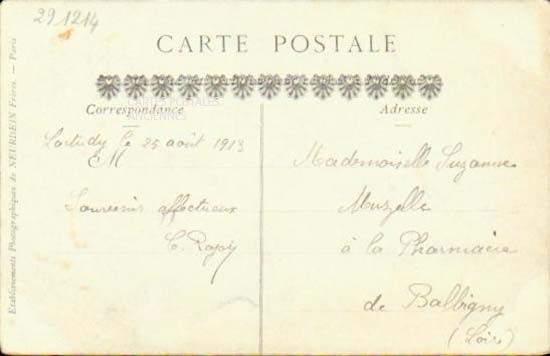 29 1214
CARTE POSTALE
Correspondance
CARTES POSTALES
ANCIENNES
Adresse
Loctudy le 25 août 1913
M
Souvenir affectueux
C.
Mademoiselle Suzanne
Muzelle
à la Pharmacie
de Balbigny
(Loire)
Etablissements Photographiques de NEURDEIN Frères. — Paris